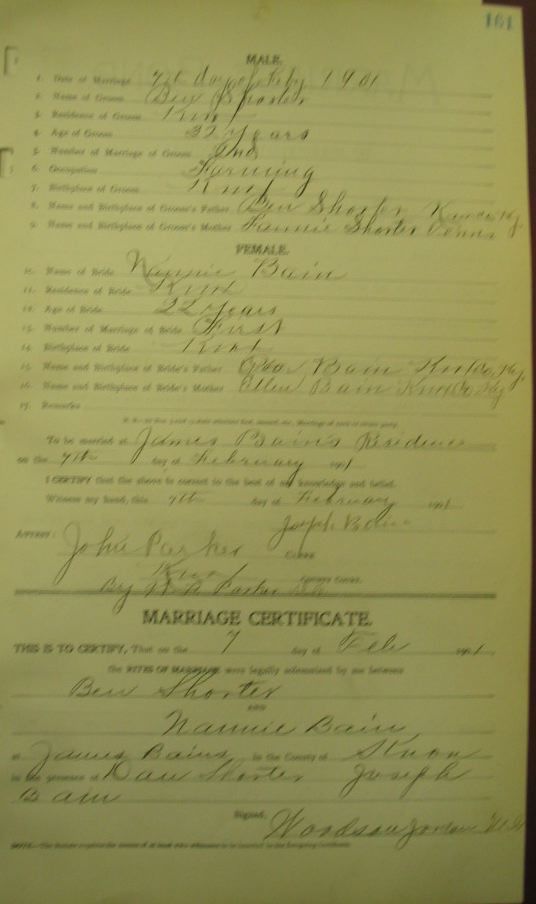 161
MALE.
1. Date of Marriage 7th day of Feby 1901
2. Name of Groom Ben Shorter
3. Residence of Groom Knox
4. Age of Groom 37 Years
5. Number of Marriage of Groom 2nd
6. Occupation Farming
7. Birthplace of Groom Knox
8. Name and Birthplace of Groom's Father Ben Shorter Knox Ky.
9. Name and Birthplace of Groom's Mother Fannie Shorter Tenn
FEMALE.
10. Name of Bride Nannie Bain
11. Residence of Bride Knox
12. Age of Bride 22 Years
13. Number of Marriage of Bride First
14. Birthplace of Bride Knox
15. Name and Birthplace of Bride's Father Bain Knox Co, Ky.
16. Name and Birthplace of Bride's Mother Ellen Bain Knox Co, Ky
17. Remarks
To be married at James Bain's Residence
on the 7th day of February 1901
I CERTIFY that the above is correct to the best of my knowledge and belief.
Witness my hand, this 7th day of February 1901
Joseph Bain
ATTEST:
John Parker Clerk
Knox County Court.
By Parker D.C.
MARRIAGE CERTIFICATE.
THIS IS TO CERTIFY, That on the 7 day of Feb 1901
the RITES OF MARRIAGE were legally solemnized by me between
Ben Shorter
AND
Nannie Bain
at James Bains in the County of Knox
in the presence of Dan Shorter Joseph
Bain
Signed, Woodson Jordan